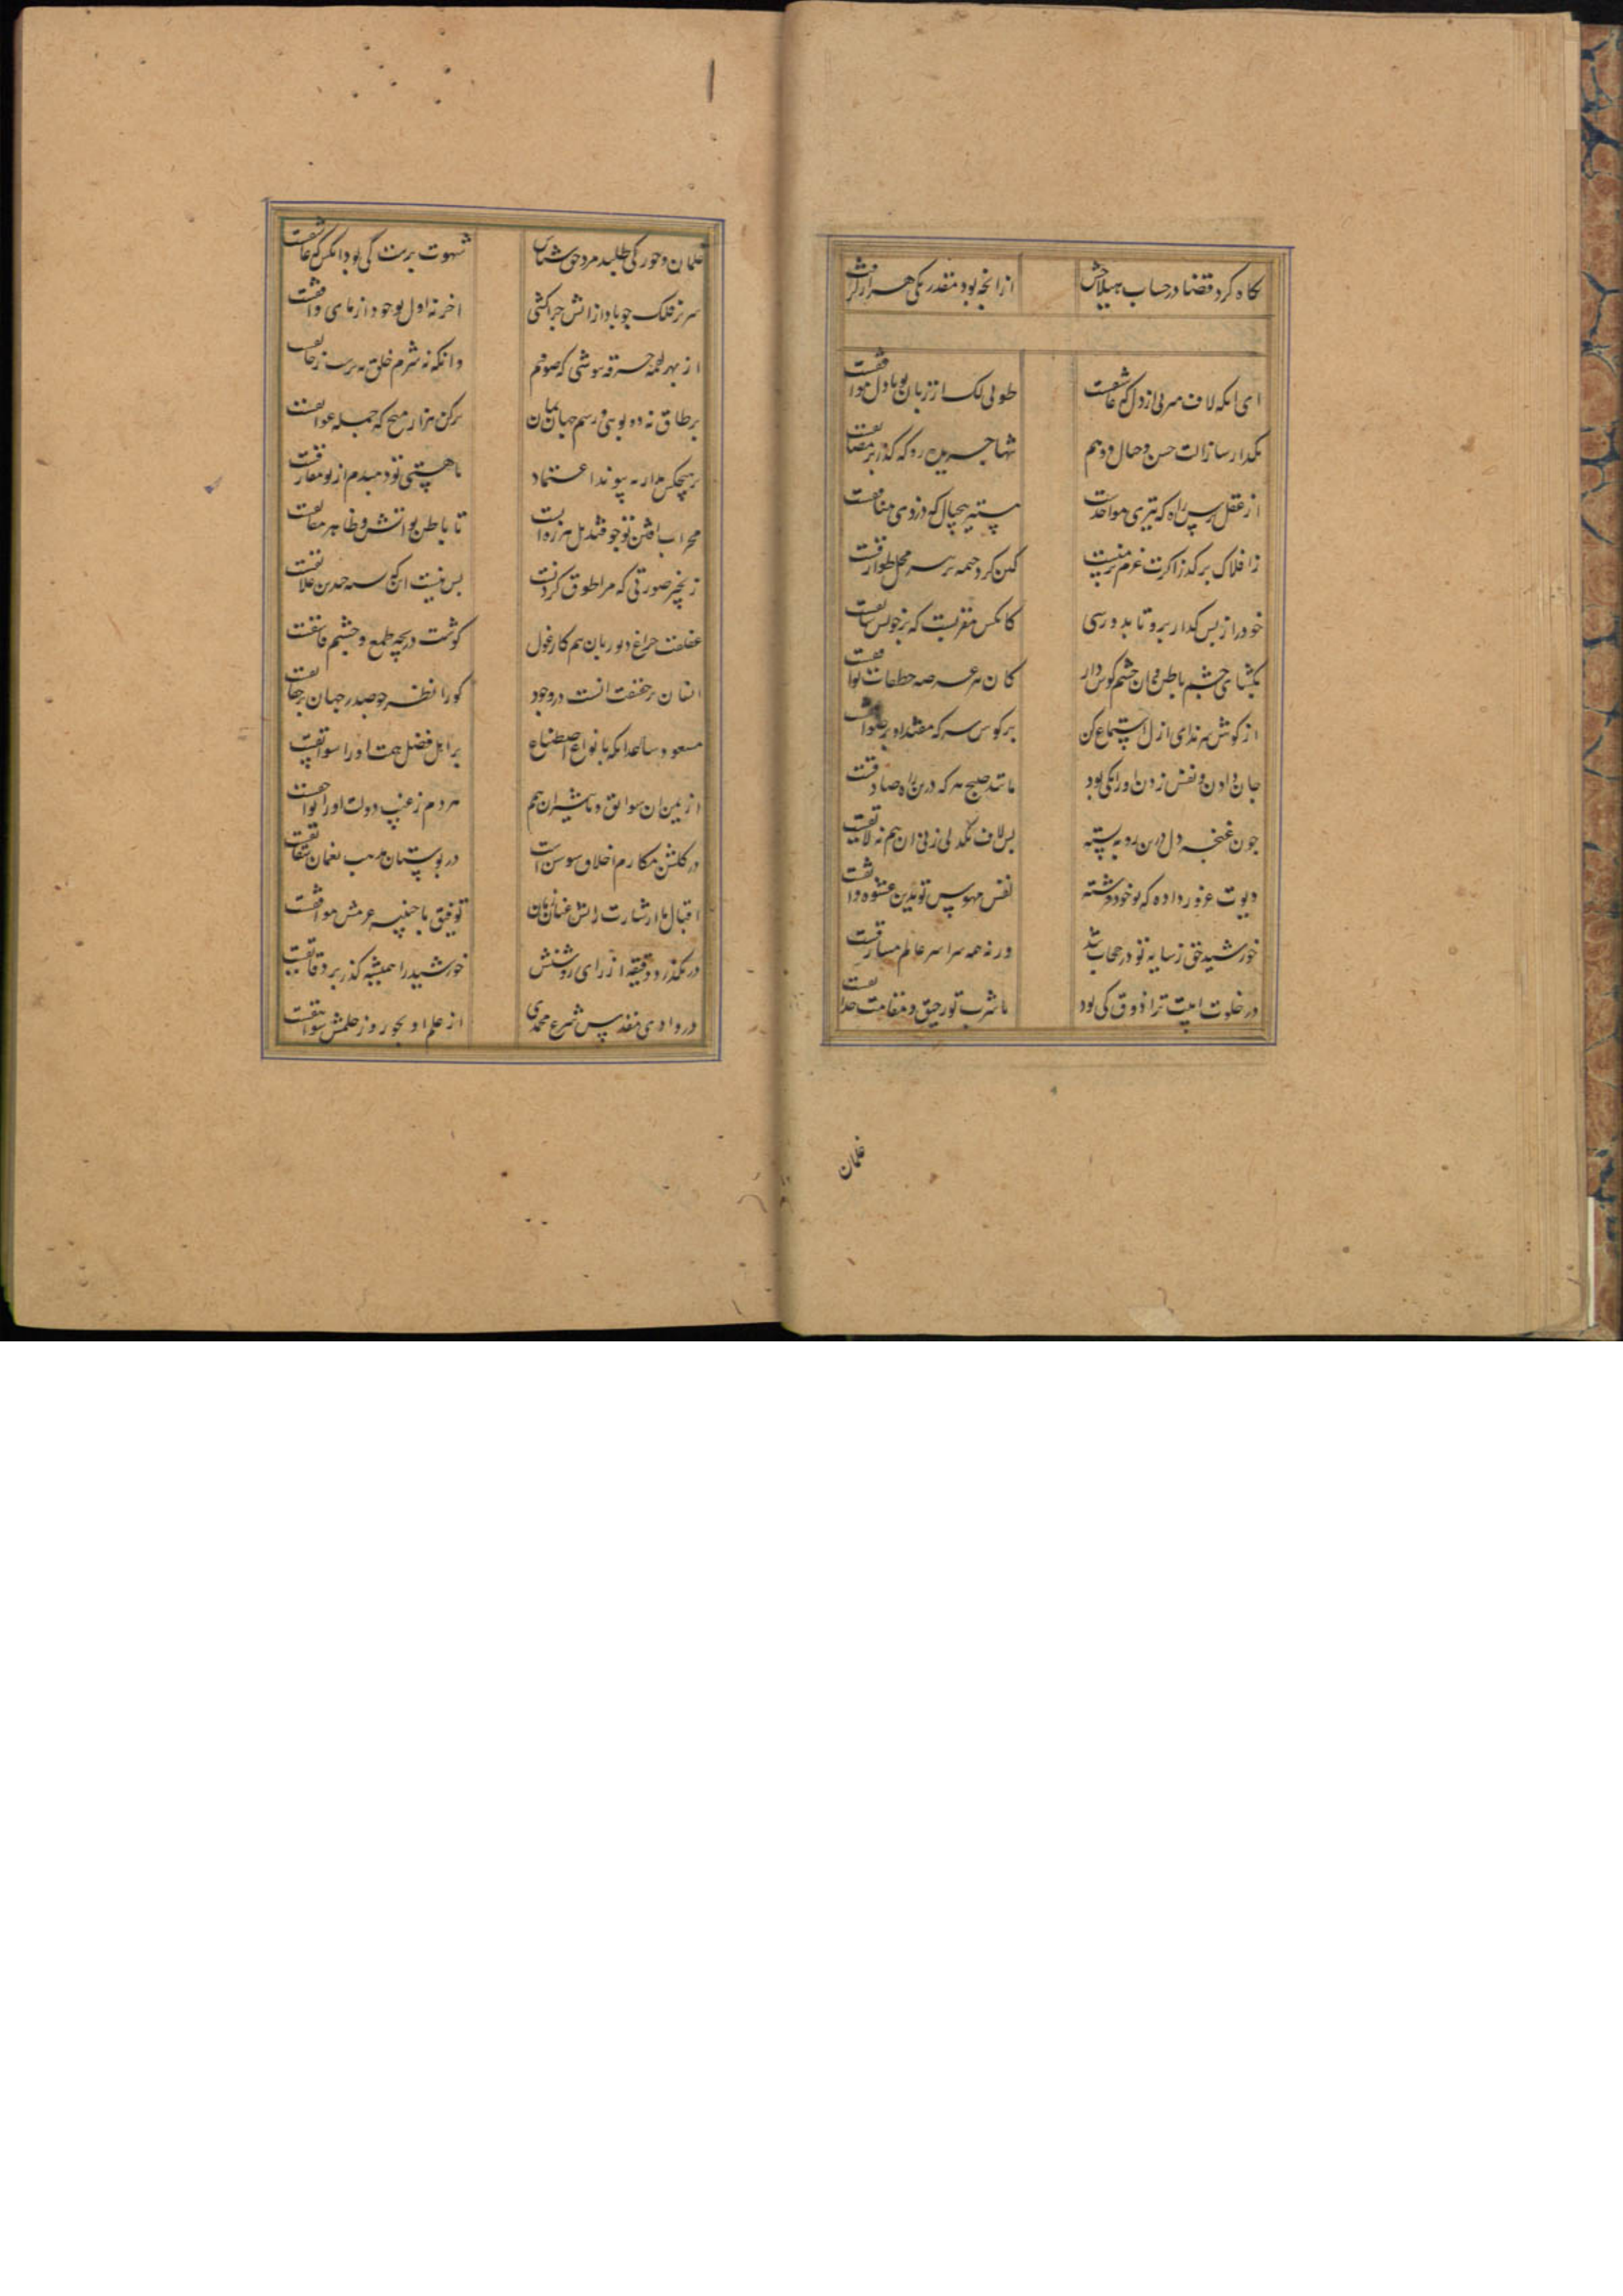 نگاه کرد قضا در حساب هیلاجش از آنچه بود مقدر یکی هزار گرفت
ای آنکه لاف میزنی از دل که عاشقست طوبی لک ار زبان تو با دل موافقست
بگذار ساز آلت حس و خیال و وهم تنها جریده رو که گذر بر مضایقست
از عقل پرس راه که پیری موحدست مسپر پی خیال که دزدی منافقست
ز افلاک برگذر اگرت عزم منزلست کین گرد خیمه بر سر محل طوارقست
خود را ز پس گذار برو تا بدو رسی کانکس مقربست که بر خویش سابقست
بگشای چشم باطن و آن چشم گوش دار کان عرصه خطفات
از گوش سر ندای ازل استماع کن برگوس سر که مقتدا و بر
جان دادن و نفس زدن او را یکی بود مانند صبح هر که درین راه صادقست
چون غنچه دل درین ره بسته پس لاف یکدلی زنی آن هم نه لایقست
دیوت غرور داده که تو خود فرشته نفس مهوس تو بدین عشوه واثقست
خورشید حق ز سایه تو در حجاب شد ورنه همه سراسر عالم مشارقست
در خلوت انیت ترا ذوق کی بود ما شرب تو رحیق و مقامت حدایقست
غلمان
غلمان و حور کی طلبد مرد حق شناس شهوت پرست کی بود آنکس که عاشقست
سر بر فلک چو باد از آتش چرا کشی آخر نه اول تو خود از مای دافقست
از بهر لقمه خرقه پوشی که صوفیم وانگه نه شرم خلق نه ترست ز خالقست
بر طاق نه دو بوسی و رسم جهانیان برکن هزار میخ که جمله عوایقست
بر هیچکس مدار به پیوند اعتماد تا هستی تو دمبدم از تو مفارقست
محراب افتن تو چو قندیل هرزه است تا باطن تو آتش و ظاهر
زنجیر صورتی که مرا طوق گردنست بس نیست این که سه چندین علایقست
غفلت چراغ دیو ریان هم کار غول گوشت دریچه طمع و چشم فاسقست
انسان بر حقیقت آنست در وجود کو را نظر چو صید در جهان بر حقایقست
مسعود ساعد آنکه بانواع اصطناع بر اهل فضل همت او را سوابقست
از یمن آن سوابق و تاثیر آن هم هردم ز غیب دولت او را لواحقست
در گلشن مکارم اخلاق سوسن است در بوستان مذهب نعمان شقایقست
اقبال با اشارت رایش عنان عنان توفیق با جنیبه عزمش موافقست
در نگذرد دقیقه از رای روشنش خورشید را همیشه گذر بر دقایقست
در وادی مقدس شرع محمدی از علم او بحور و ز حلمش شواهقست